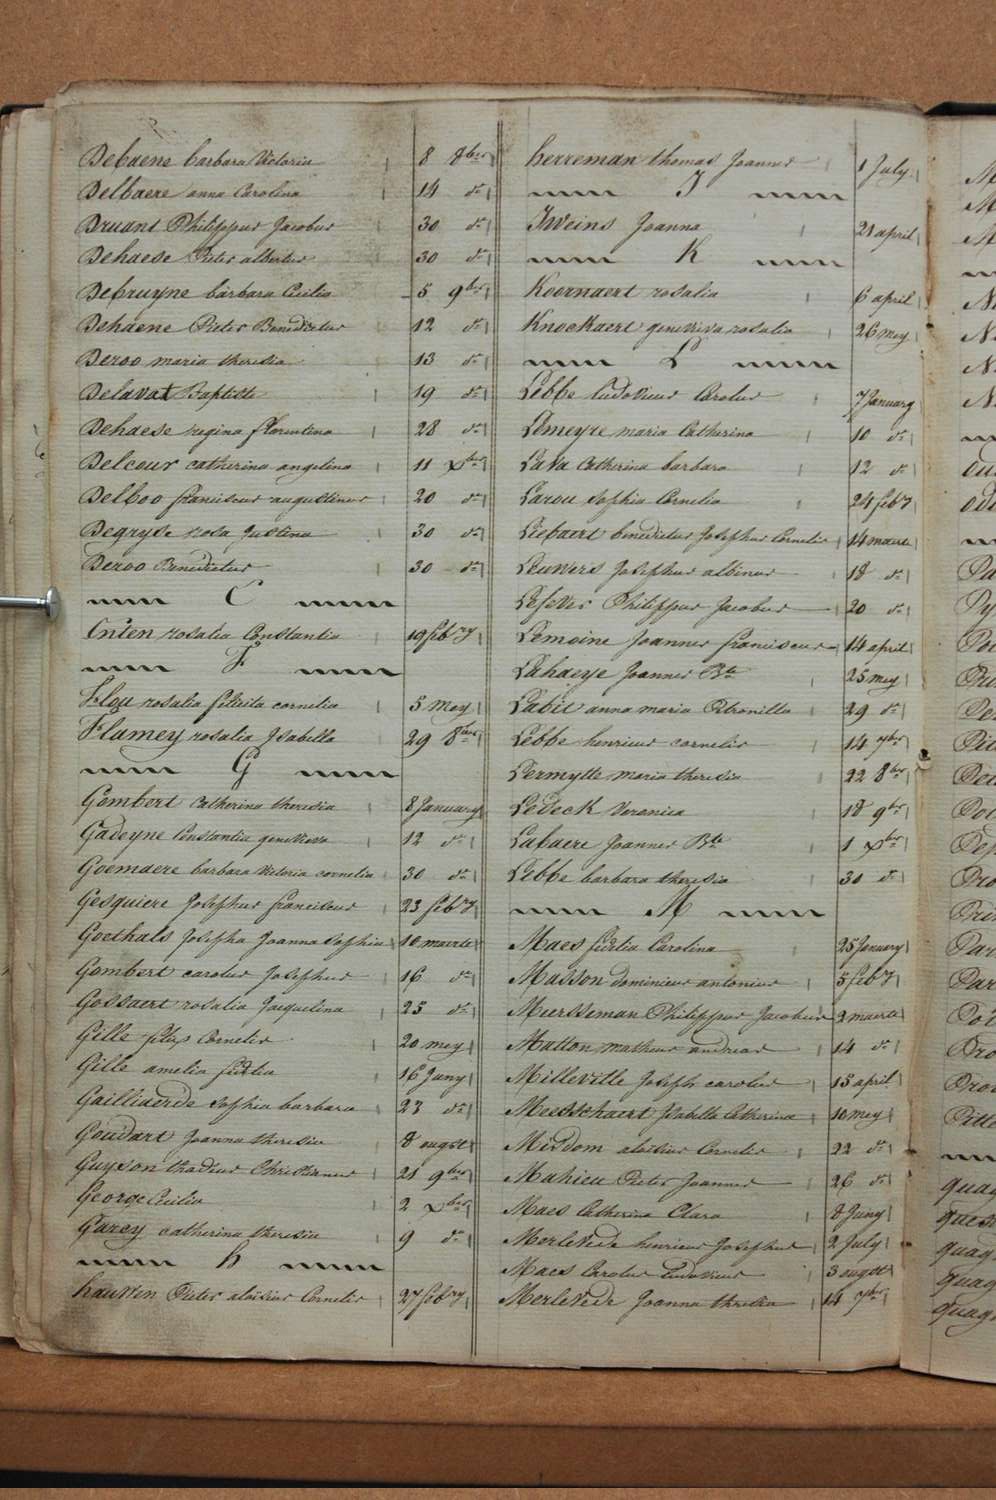 Debaene barbara Victoria 8 8ber
Delbaere anna Carolina 14 do
Druant Philippus Jacobus 30 do
Dehaese Pieter albertus 30 do
Debruyne barbara Cecilia 5 9ber
Dehaene Pieter Benedictus 12 do
Deroo maria theresia 13 do
Delavat Baptiste 19 do
Dehaese regina florentina 28 do
Delcour catharina angelina 11 Xber
Delboo franciscus augustinus 20 do
Degryse rosa Justina 30 do
Deroo Benedictus 30 do
E
Enten rosalia Constantia 19 feb ry
F
Flou rosalia felicita cornelia 5 Mey
Flamey rosalia Isabella 29 8ber
G
Gombert Catherina theresia 8 January
Gadeyne Constantia genoveva 12 do
Goemaere barbara Victoria cornelia 30 do
Gesquiere Josephus franciscus 23 feb ry
Goethals Josepha Joanna Sophia 10 maerte
Gombert carolus Josephus 16 do
Gossaert rosalia Jacquelina 25 do
Gille pius Cornelis 20 mey
Gille amelia fidelia 16 Juny
Gailliaerde Sophia barbara 23 do
Goudart Joanna theresia 8 ougst
Guyson thadeus Christianus 21 9ber
George Cecilia 2 Xber
Garcy catherina theresia 9 do
h
hautten Pieter aloisius Cornelis 27 feb ry
herreman thomas Joannes 1 July
I
Iweins Joanna 21 april
K
Koornaert rosalia 6 april
Knockaert genoviva rosalia 26 mey
L
Lebbe Ludovicus Carolus 7 January
Lemeyre maria Catherina 10 do
Lava Catherina barbara 12 do
Larou Sophia Cornelia 24 feb ry
Liebaert benedictus Josephus Cornelis 14 maerte
Leuwers Josephus albinus 18 do
Lefever Philippus Jacobus 20 do
Lemoine Joannes franciscus 14 april
Lahaeye Joannes Bte 25 mey
Labit anna maria Petronilla 29 do
Lebbe henricus cornelis 14 7ber
Lermytte maria theresia 22 8ber
Ledeck Veronica 18 9ber
Labaere Joannes Bte 1 Xber
Lebbe barbara theresia 30 do
M
Maes fidelia Carolina 25 January
Masson dominicus antonius 5 feb ry
Meersseman Philippus Jacobus 2 maerte
Matton matheus andreas 14 do
Milleville Joseph carolus 15 april
Meesschaert Isabella Catherina 10 mey
Misdom aloisius Cornelis 22 do
Mahieu Pieter Joannes 26 do
Maes Catherina Clara 8 Juny
Merlevede henricus Josephus 2 July
Maes Carolus Ludovicus 3 ougst
Merlevede Joanna theresia 14 7ber